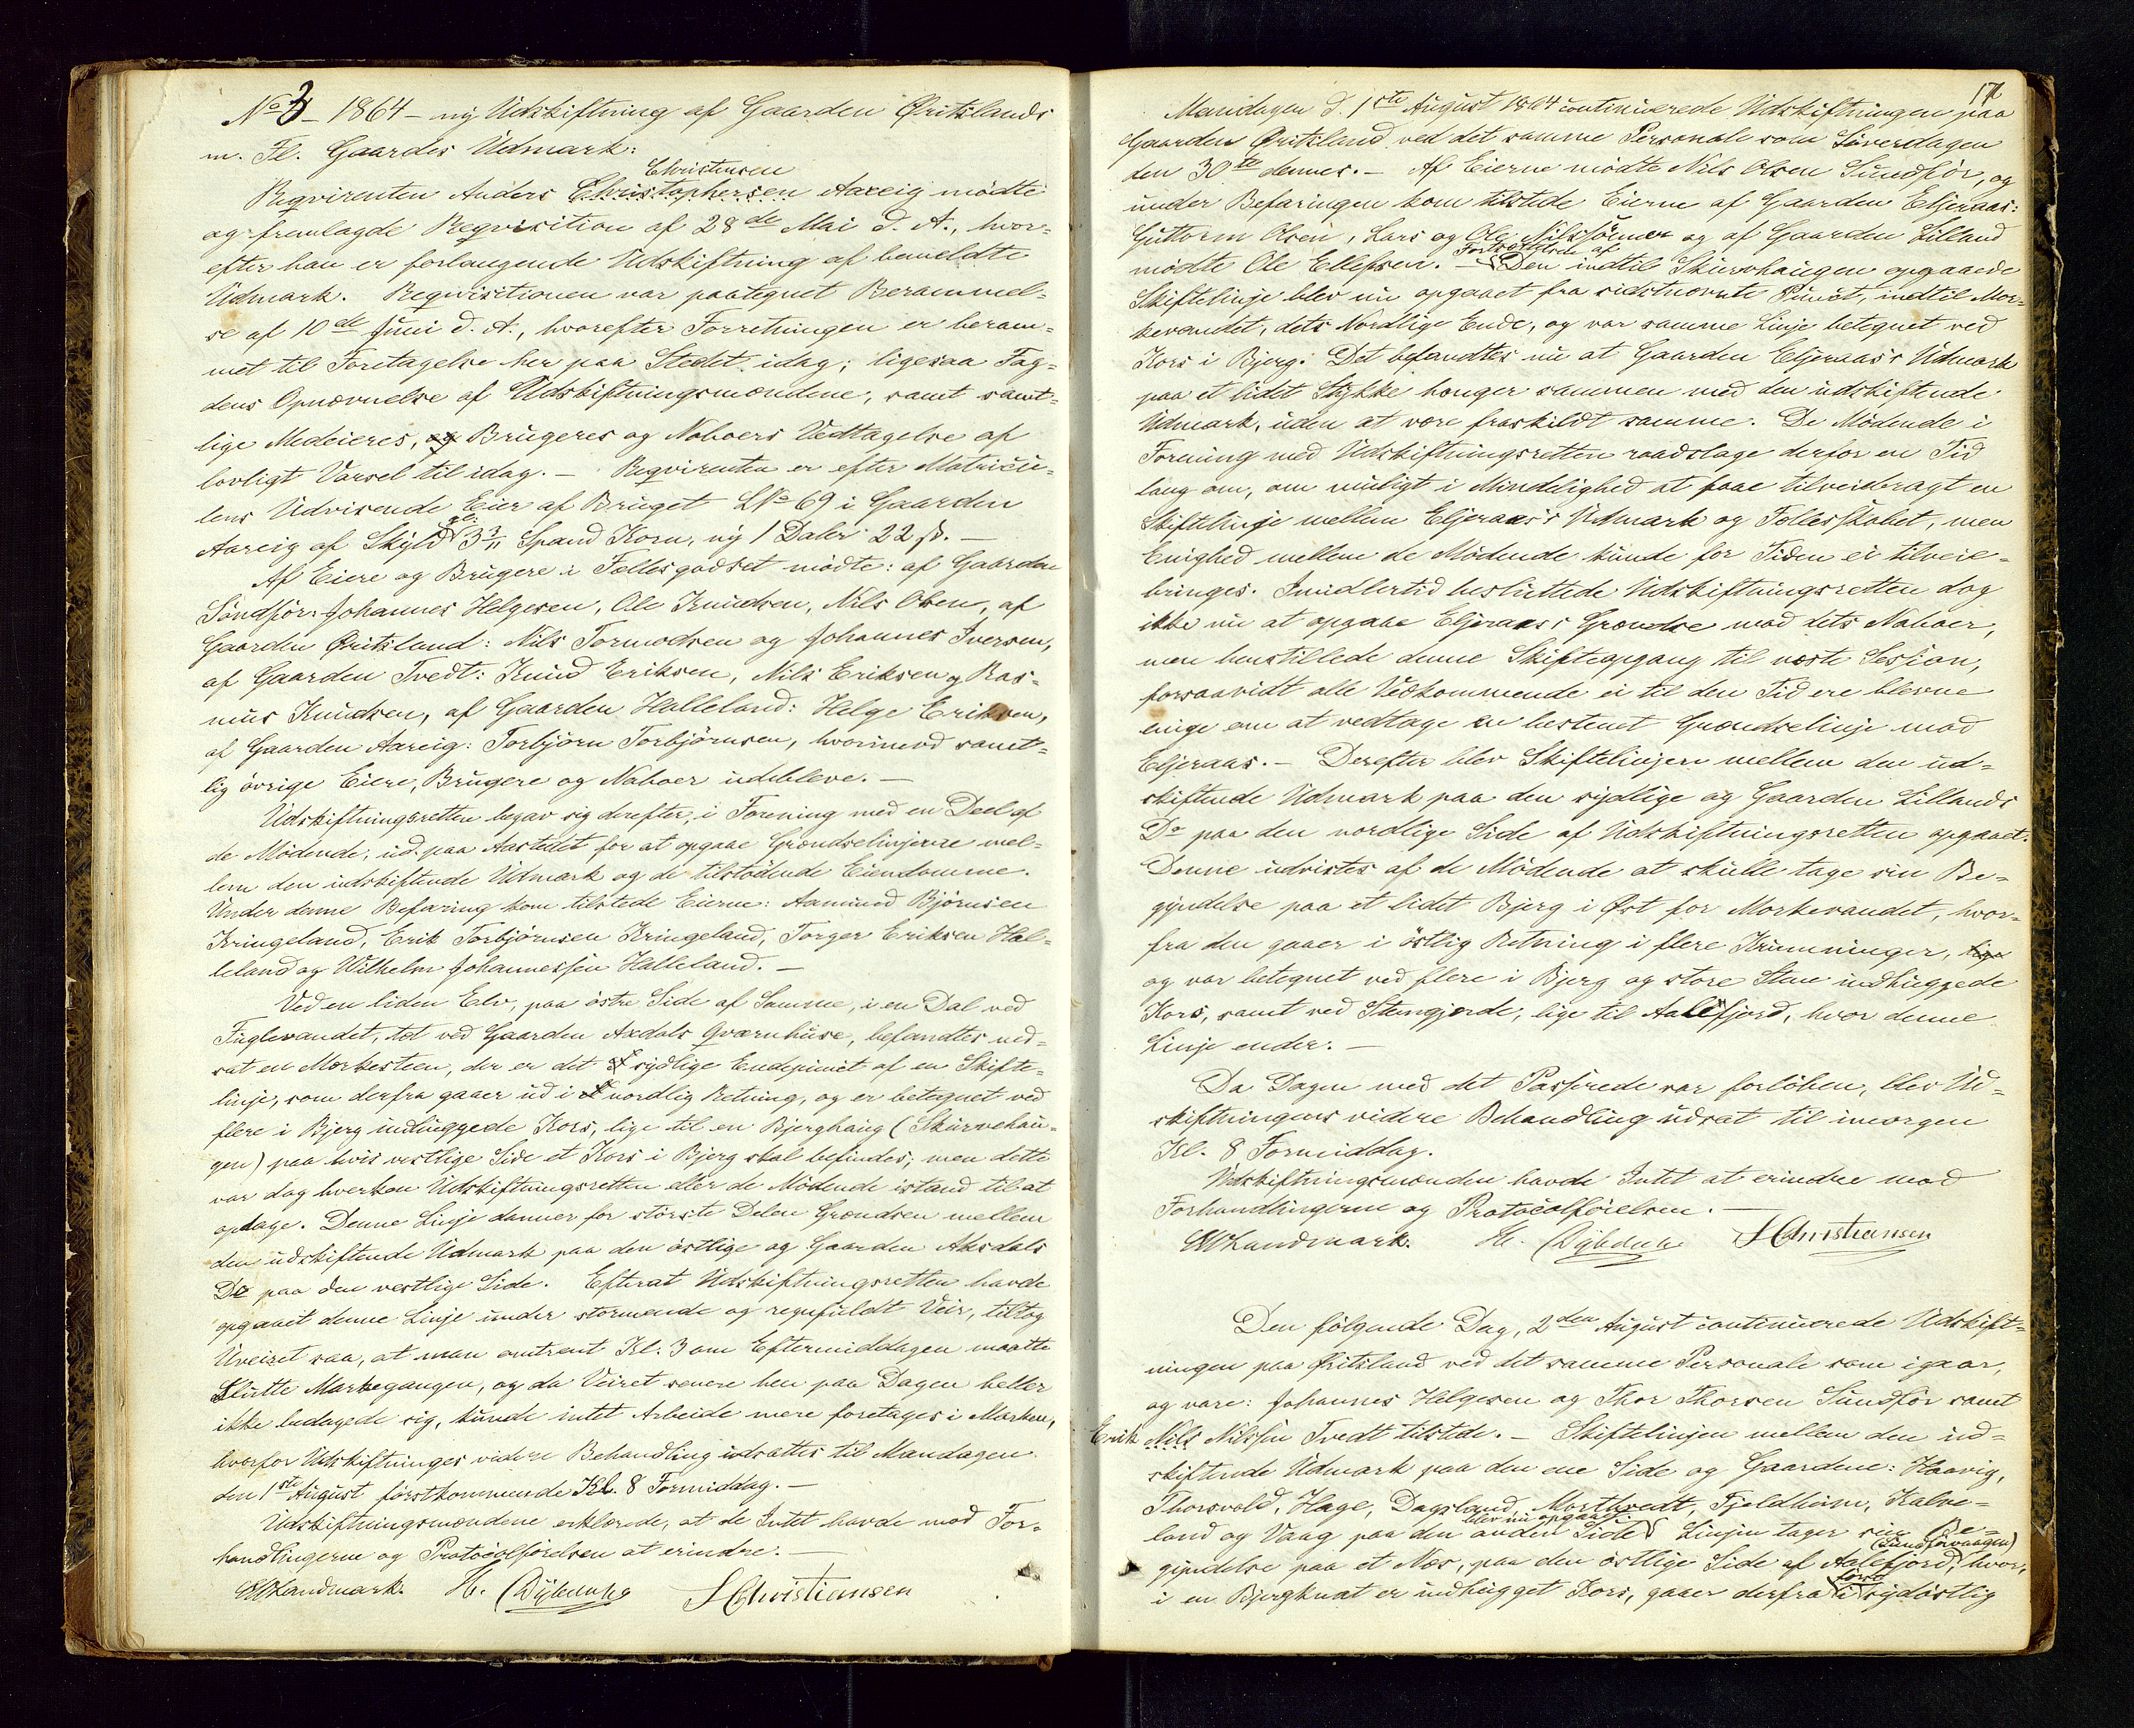 No 3 - 1864 - ny Udskiftning af Gaarden Øritslands
m. Fl. Gaardes Udmark:
Christensen
Reqvirenten Anders Christophersen Aareig mødte
og fremlagde Reqvisition af 28de Mai d. A., hvor-
efter han er forlangende Udskiftning af bemeldte
Udmark. Reqvisitionen var paategnet Berammel-
se af 10de Juni d. A., hvorefter Forretningen er beram-
met til Foretagelse her paa Stedet idag; ligesaa Fog-
dens Opnævnelse af Udskiftningsmændene, samt samt-
lige Medeieres, og Brugeres og Naboers Vedtagelse af
lovligt Varsel til idag. - Reqvirenten er efter Matricü-
lens Udvisende Eier af Bruget LNo 69 i Gaarden
Aareig af Skyld gl. 3 Spand Korn, ny 1 Daler 22 ß. -
Af Eiere og Brugere i Fællesgodset mødte: af Gaarden
Sundfør: Johannes Helgesen, Ole Knudsen, Nils Olsen, af
Gaarden Øritsland: Nils Tormodsen og Johannes Iversen,
af Gaarden Tvedt: Knud Eriksen, Nils Eriksen og Ras-
mus Knudsen, af Gaarden Halleland: Helge Eriksen,
af Gaarden Aareig: Torbjørn Torbjørnsen, hvorimod samt-
lig øvrige Eiere, Brugere og Naboer udebleve. -
Udskiftningsretten begav sig derefter, i Forening med en Deel af
de Mødende, ud paa Aastedet for at opgaae Grændselinjerne mel-
lem den udskiftende Udmark og de tilstødende Eiendomme.
Under denne Befaring kom tilstede Eierne: Aamund Bjørnsen
Kringeland, Erik Torbjørnsen Kringeland, Torger Eriksen Hal-
leland og Wilhelm Johannessen Halleland. -
Ved en liden Elv, paa østre Side af Samme, i en Dal ved
Fuglevandet, tæt ved Gaarden Axdals Qværnhuse, befandtes ned-
sat en Merkesteen, der er det sydlige Endepunct af en Skifte-
linje, som derfra gaaer ud i nordlig Retning, og er betegnet ved
flere i Bjerg indhuggede Kors, lige til en Bjerghaug (Skurvehau-
gen) paa hvis vestlige Side et Kors i Bjerg skal befindes; men dette
var dog hverken Udskiftningsretten eller de Mødende istand til at
opdage. Denne Linje danner for største Delen Grændsen mellem
den udskiftende Udmark paa den østlige og Gaarden Aksdals
Do paa den vestlige Side. Efterat Udskiftningsretten havde
opgaaet denne Linje under stormende og regnfuldt Veir, tiltog
Uveiret saa, at man omtrent Kl. 3 om Eftermiddagen maatte
slutte Markegangen, og da Veiret senere hen paa Dagen heller
ikke bedagede sig, kunde intet Arbeide mere foretages i Marken,
hvorfor Udskiftninges videre Behandling udsættes til Mandagen
den 1ste August førstkommende Kl. 8 Formiddag. -
Udskiftningsmændene erklærede, at de Intet havde mod For-
handlingerne og Protocolførelsen at erindre. -
Landmark. H. Dybdahl Christiansen
17
Mandagen d. 1ste August 1864 continuerede Udskiftningen paa
Gaarden Øritsland ved det samme Personale som Løverdagen
den 30te dennes. - Af Eierne mødte Nils Olsen Sundfør, og
under Befaringen kom tilstede Eierne af Gaarden Eljeraas:
Guttorm Olsen, Lars og Ole Nilssønner og af Gaarden Lilland
Fortsættelse af
mødte Ole Ellefsen. - Den indtil Skurvhaugen opgaaede
Skiftelinje blev nu opgaaet fra sidstnævnte Punct, indtil Mor-
kevandet, dets Nordlige Ende, og var samme Linje betegnet ved
Kors i Bjerg. Det befandtes nu at Gaarden Eljeraas's Udmark
paa et lidet Stykke hænger sammen med den udskiftende
Udmark, uden at være fraskildt samme. De Mødende i
Forening med Udskiftningsretten raadslage derfor en Tid
lang om, om muligt i Mindelighed at faae tilveiebragt en
Skiftelinje mellem Eljeraas's Udmark og Fællesskabet, men
Enighed mellem de Mødende kunde for Tiden ei tilveie-
bringes. Imidlertid besluttede Udskiftningsretten dog
ikke nu at opgaae Eljeraas's Grændse mod dets Naboer,
men henstillede denne Skifteopgang til næste Session,
forsaavidt alle Vedkommende ei til den Tid ere blevne
enige om at vedtage en bestemt Grændselinje mod
Eljeraas. - Derefter blev Skiftelinjen mellem den ud-
skiftende Udmark paa den sydlige og Gaarden Lillands
Do paa den nordlige Side af Udskiftningsretten opgaaet.
Denne udvistes af de Mødende at skulle tage sin Be-
gyndelse paa et lidet Bjerg i Øst for Morkevandet, hvor-
fra den gaaer i østlig Retning i flere Krumninger, lige
og var betegnet ved flere i Bjerg og store Stene indhuggede
Kors, samt ved Steengjerde, lige til Aalefjord, hvor denne
Linje ender. -
Da Dagen med det Passerede var forløben, blev Ud-
skiftningens videre Behandling udsat til imorgen
Kl. 8 Formiddag.
Udskiftningsmænden havde Intet at erindre mod
Forhandlingerne og Protocolførelsen. -
Landmark. H. Dybdahl Christiansen
Den følgende Dag, 2den August continuerede Udskift-
ningen paa Øritsland ved det samme Personale som igaar,
og vare: Johannes Helgesen og Thor Thorsen Sundfør samt
Erik Nils Nilssen Tvedt tilstede. - Skiftelinjen mellem den ud-
skiftende Udmark paa den ene Side og Gaardene: Haavig,
Thorsvold, Hage, Dagsland, Morthvedt, Fjeldheim, Kalve-
blev nu opgaaet.
land og Vaag paa den anden Side Linjen tager sin Be-
(Sundførvaagen)
gyndelse paa et Næs, paa den østlige Side af Aalefjord, hvor,
først
i en Bjergknat er indhugget Kors, gaaer derfra i sydøstlig